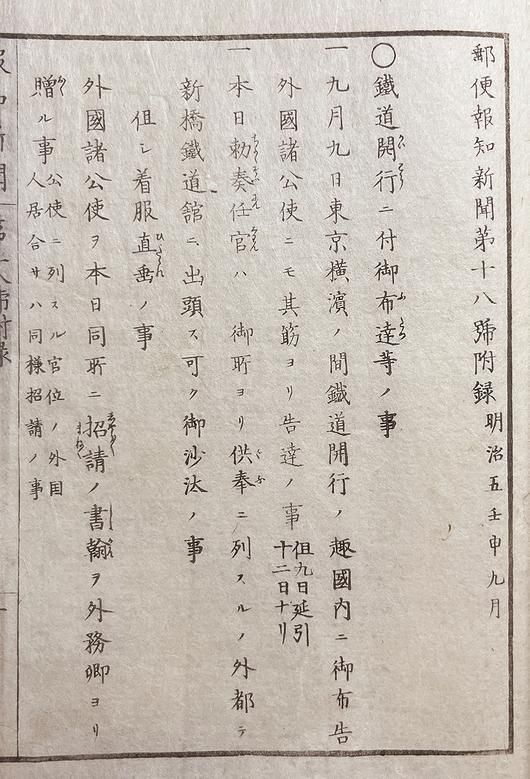 郵便報知新聞第十八號附録 明治五壬申九月
〇鐵道開行ニ付御布達等ノ事
一九月九日東京橫濱ノ間鐵道開行ノ趣國内ニ御布告
外國諸公使ニモ其筋ヨリ告達ノ事 但九日延引十二日トナリ
一本日勅奏任官ハ 御所ヨリ供奉ニ列スルノ外都テ
新橋鐵道舘ニ出頭ス可ク御沙汰ノ事
但シ着服直垂ノ事
外國諸公使ヲ本日同所ニ招請ノ書翰ヲ外務卿ヨリ
贈ル事 公使ニ列スル官位ノ外国人居合サハ同様招請ノ事